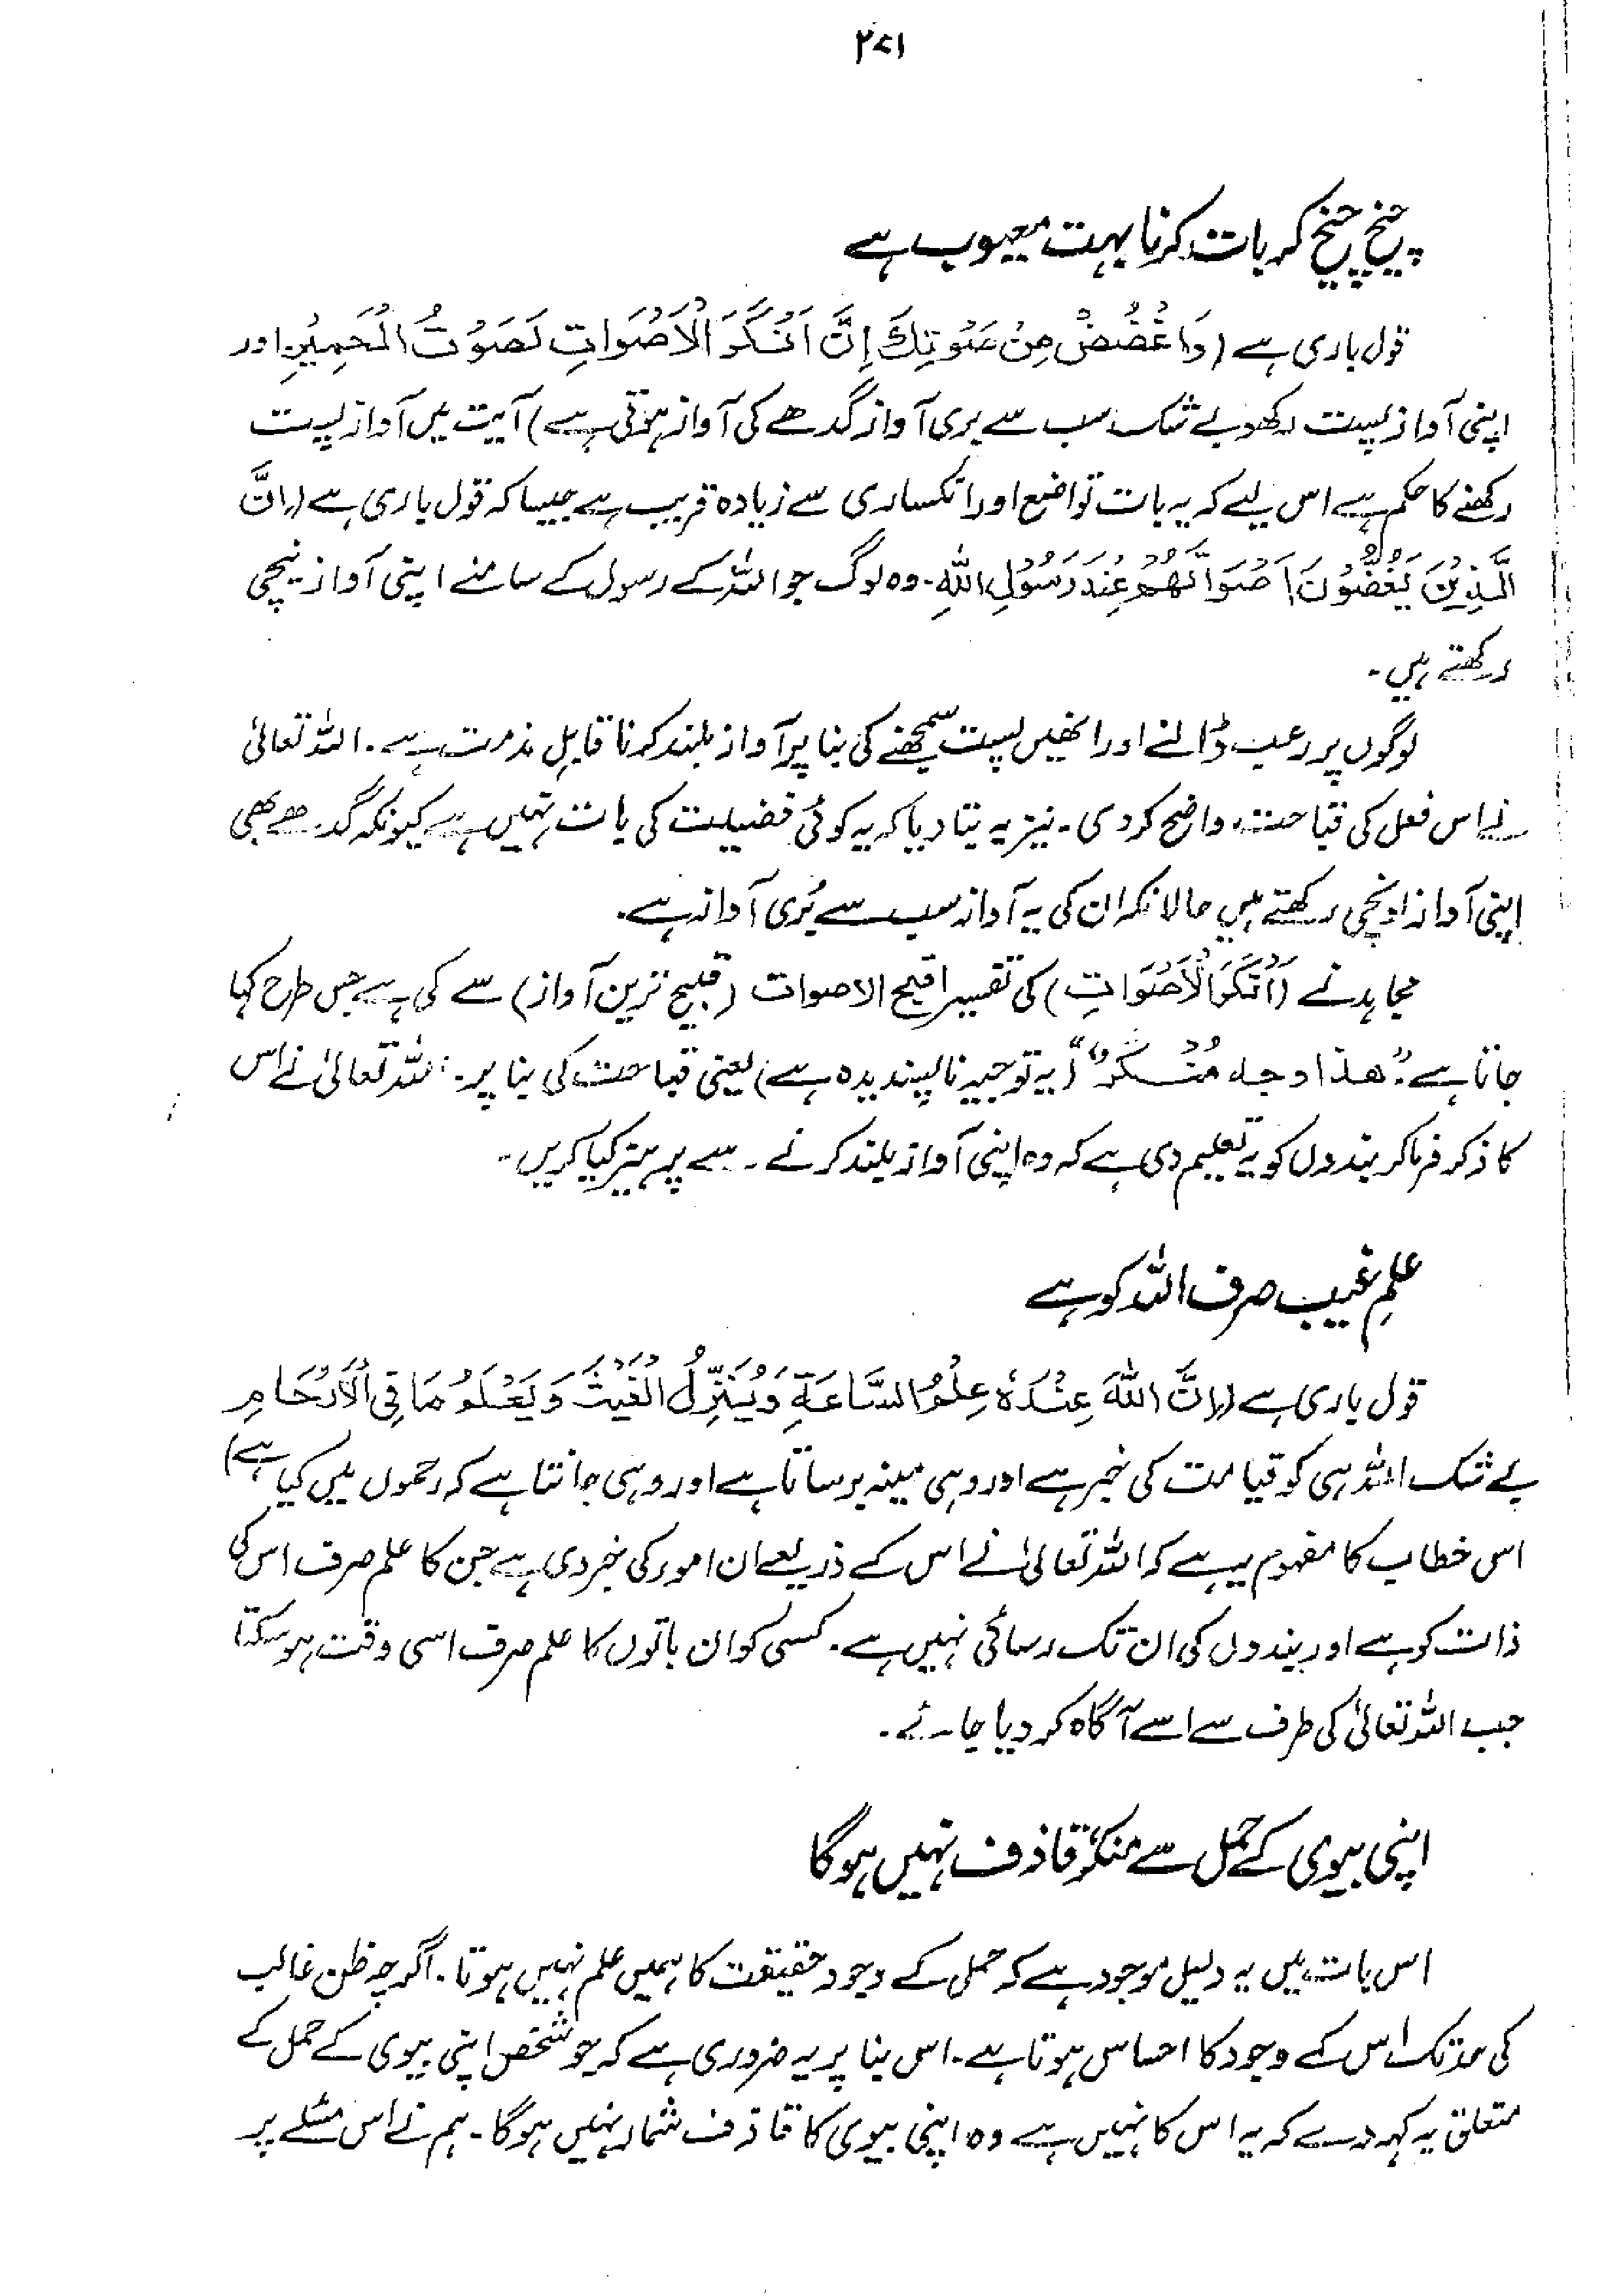 ۲۷۱
چیخ چیخ کر بات کرنا بہت معیوب ہے
قول باری ہے (وَاغْضُضْ مِنْ صَوْتِكَ اِنَّ اَنْكَرَ الْاَصْوَاتِ لَصَوْتُ الْحَمِيْرِ اور
اپنی آواز پست رکھو بے شک سب سے بری آواز گدھے کی آواز ہوتی ہے) آیت میں آواز پست
رکھنے کا حکم ہے اس لیے کہ یہ بات تواضع اور انکساری سے زیادہ قریب ہے جیسا کہ قول باری ہے (اِنَّ
الَّذِيْنَ يَغُضُّوْنَ اَصْوَاتَهُمْ عِنْدَ رَسُوْلِ اللّٰهِ۔ وہ لوگ جو اللہ کے رسول کے سامنے اپنی آواز نیچی
رکھتے ہیں۔
لوگوں پر رعب ڈالنے اور انھیں پست سمجھنے کی بنا پر آواز بلند کرنا قابلِ مذمت ہے۔ اللہ تعالیٰ
نے اس فعل کی قباحت واضح کر دی۔ نیز یہ بتا دیا کہ یہ کوئی فضیلت کی بات نہیں ہے کیونکہ گدھے بھی
اپنی آواز اونچی رکھتے ہیں حالانکہ ان کی یہ آواز سب سے بُری آواز ہے۔
مجاہد نے (اَنْكَرَ الْاَصْوَاتِ) کی تفسیر اقبح الاصوات (قبیح ترین آواز) سے کی ہے جس طرح کہا
جاتا ہے "هذا وجه مُنْكَرٌ" (یہ توجیہ ناپسندیدہ ہے) یعنی قباحت کی بنا پر۔ اللہ تعالیٰ نے اس
کا ذکر فرما کر بندوں کو یہ تعلیم دی ہے کہ وہ اپنی آواز بلند کرنے ۔ سے پرہیز کیا کریں۔
علمِ غیب صرف اللہ کو ہے
قول باری ہے (اِنَّ اللّٰهَ عِنْدَهٗ عِلْمُ السَّاعَةِ وَيُنَزِّلُ الْغَيْثَ وَيَعْلَمُ مَا فِى الْاَرْحَامِ
بے شک اللہ ہی کو قیامت کی خبر ہے اور وہی مینہ برساتا ہے اور وہی جانتا ہے کہ رحموں میں کیا ہے)
اس خطاب کا مفہوم یہ ہے کہ اللہ تعالیٰ نے اس کے ذریعے ان امور کی خبر دی ہے جن کا علم صرف اس کی
ذات کو ہے اور بندوں کی ان تک رسائی نہیں ہے۔ کسی کو ان باتوں کا علم صرف اسی وقت ہو سکتا
جب اللہ تعالیٰ کی طرف سے اسے آگاہ کر دیا جائے۔
اپنی بیوی کے حمل سے منکر قاذف نہیں ہوگا
اس بات میں یہ دلیل موجود ہے کہ حمل کے وجود حقیقت کا ہمیں علم نہیں ہوتا۔ اگرچہ ظن غالب
کی حد تک اس کے وجود کا احساس ہوتا ہے۔ اس بنا پر یہ ضروری ہے کہ جو شخص اپنی بیوی کے حمل کے
متعلق یہ کہہ دے کہ یہ اس کا نہیں ہے وہ اپنی بیوی کا قاذف شمار نہیں ہوگا۔ ہم نے اس مسئلے پر